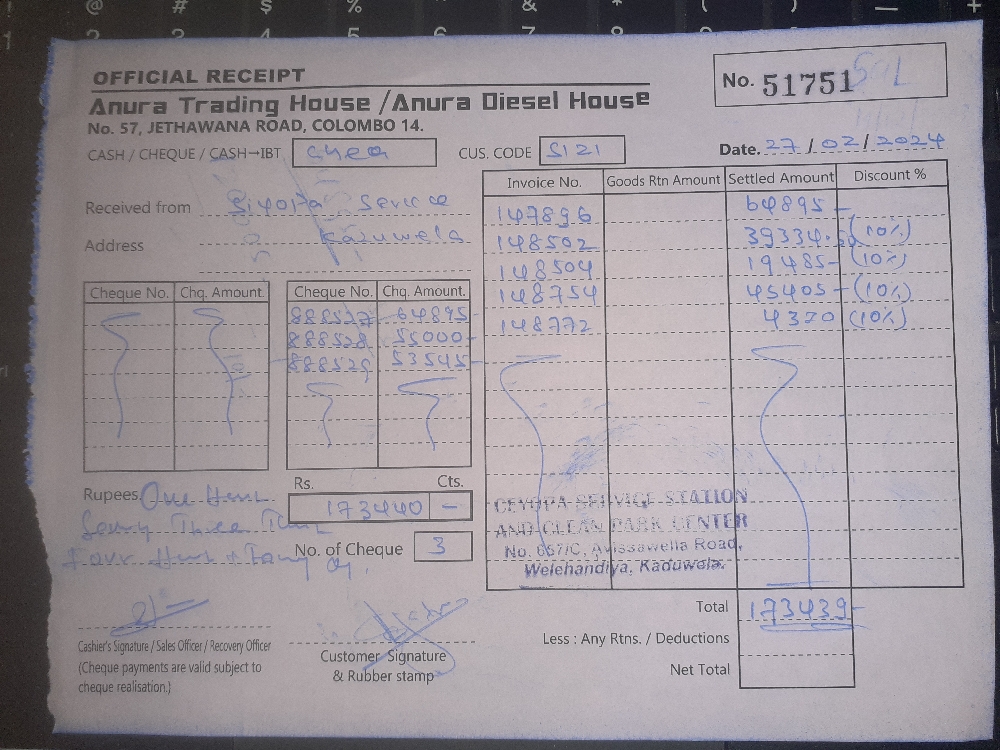 OFFICIAL RECEIPT
No. 51751
Anura Trading House / Anura Diesel House
No. 57, JETHAWANA ROAD, COLOMBO 14.
CASH / CHEQUE / CASH→IBT
CUS. CODE S121
Date. 27 / 02 / 2024
Invoice No. Goods Rtn Amount Settled Amount Discount %
Received from
Address Kaduwela
147896 64895 -
148502 39334.50 (10%)
148504 19485 - (10%)
148754 45405 - (10%)
148772 4320 (10%)
Cheque No. Chq. Amount. Cheque No. Chq. Amount.
888527 64895 -
888528 55000 -
888529 53545 -
Rupees. One
Three
Rs. Cts.
173440 -
No. of Cheque 3
CEYOPA SERVICE STATION
AND CLEAN PARK CENTER
No. 657/C, Avissawella Road,
Welehandiya, Kaduwela.
Total 173439 -
Less : Any Rtns. / Deductions
Net Total
Cashier's Signature / Sales Officer / Recovery Officer
(Cheque payments are valid subject to
cheque realisation.)
Customer Signature
& Rubber stamp